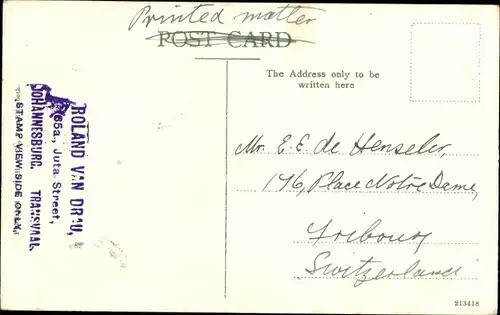 Printed matter
POST CARD
The Address only to be
written here
ROLAND VAN DRAU,
65a., Juta Street,
JOHANNESBURG. TRANSVAAL
STAMP VIEW SIDE ONLY.
Mr. E. E. de Henseler,
176, Place Notre Dame,
Fribourg
Switzerland
213418